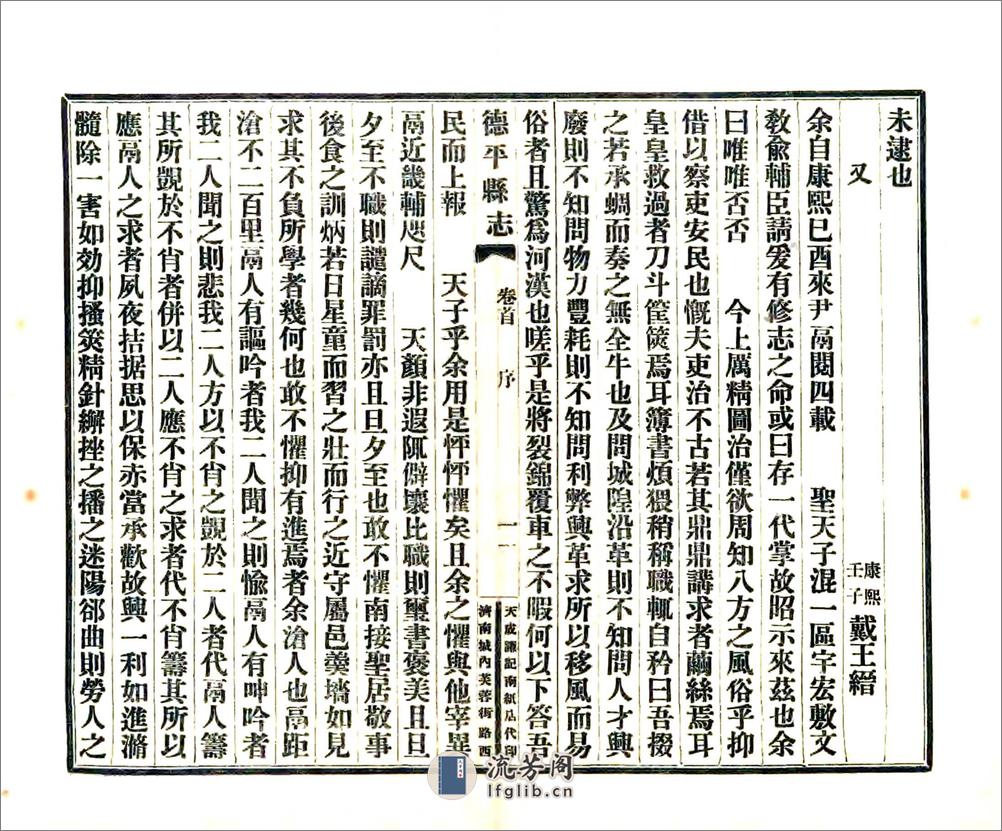 未逮也
又
康熙壬子 戴王縉
余自康熙己酉來尹鬲閱四載 聖天子混一區宇宏敷文
敎兪輔臣請爰有修志之命或曰存一代掌故昭示來茲也余
曰唯唯否否 今上厲精圖治僅欲周知八方之風俗乎抑
借以察吏安民也慨夫吏治不古若其鼎鼎講求者繭絲焉耳
皇皇救過者刀斗筐篋焉耳簿書煩猥稍稱職輒自矜曰吾掇
之若承蜩而奏之無全牛也及問城隍沿革則不知問人才興
廢則不知問物力豐耗則不知問利弊興革求所以移風而易
俗者且驚爲河漢也嗟乎是將裂錦覆車之不暇何以下答吾
德平縣志 卷首 序 二
天成謙記南紙店代印
濟南城內芙蓉街路西
民而上報 天子乎余用是怦怦懼矣且余之懼與他宰異
鬲近畿輔咫尺 天顏非遐陬僻壤比職則璽書褒美且旦
夕至不職則譴謫罪罰亦且旦夕至也敢不懼南接聖居敬事
後食之訓炳若日星童而習之壯而行之近守屬邑羮墻如見
求其不負所學者幾何也敢不懼抑有進焉者余滄人也鬲距
滄不二百里鬲人有謳吟者我二人聞之則愉鬲人有呻吟者
我二人聞之則悲我二人方以不肖之覬於二人者代鬲人籌
其所覬於不肖者併以二人應不肖之求者代不肖籌其所以
應鬲人之求者夙夜拮据思以保赤當承歡故興一利如進滫
髓除一害如効抑搔筴精針繲挫之播之迷陽郤曲則勞人之
流芳阁
lfglib.cn